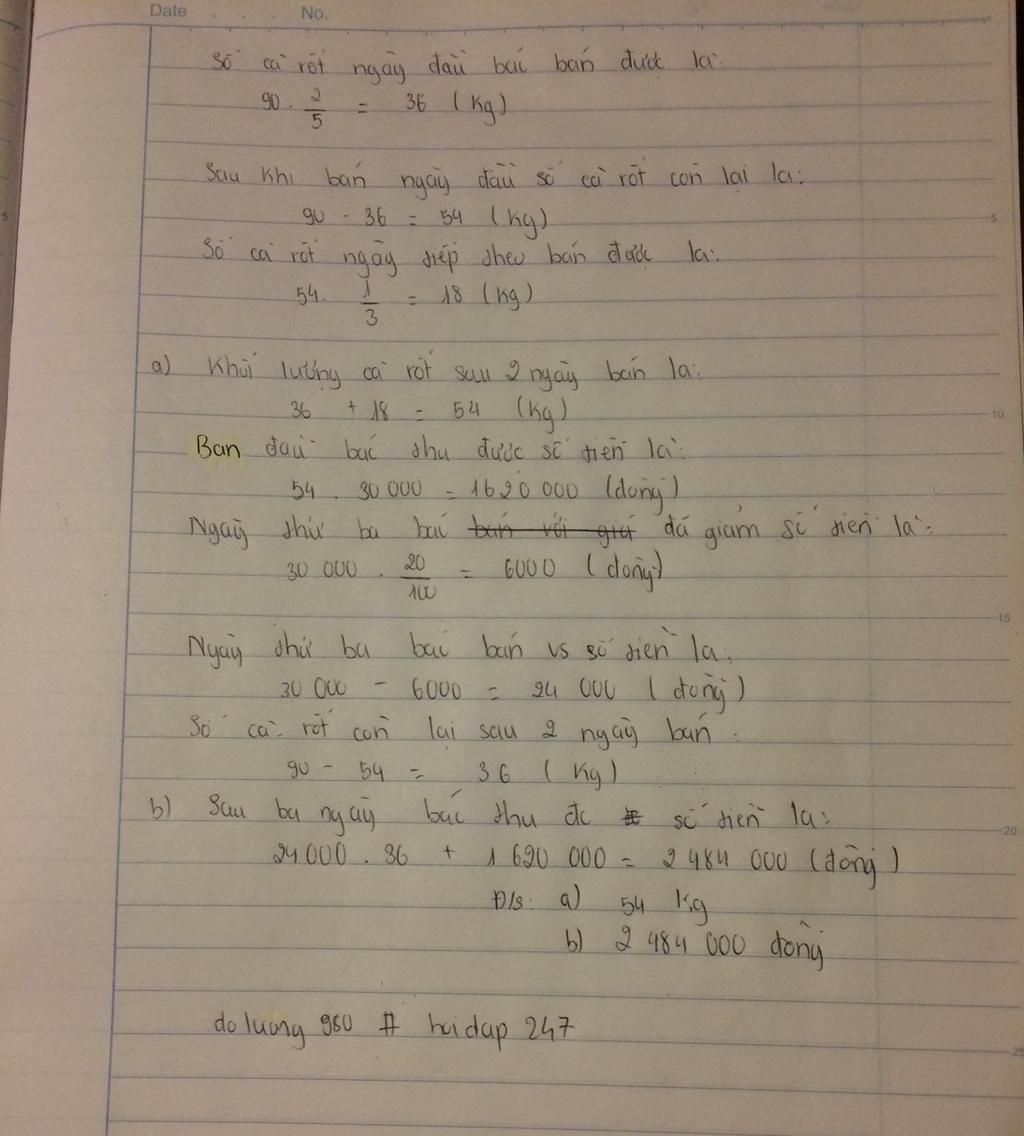 Date . . . No.
Số cà rốt ngày đầu bác bán được là:
90 . 2/5 = 36 (kg)
Sau khi bán ngày đầu số cà rốt còn lại là:
90 - 36 = 54 (kg)
5
Số cà rốt ngày tiếp theo bán được là:
54 . 1/3 = 18 (kg)
a) Khối lượng cà rốt sau 2 ngày bán là:
36 + 18 = 54 (kg)
10
Ban đầu bác thu được số tiền là:
54 . 30 000 = 1620 000 (đồng)
Ngày thứ ba bác bán với giá đã giảm số tiền là:
30 000 . 20/100 = 6000 (đồng)
15
Ngày thứ ba bác bán vs số tiền là:
30 000 - 6000 = 24 000 (đồng)
Số cà rốt còn lại sau 2 ngày bán :
90 - 54 = 36 (kg)
b) Sau ba ngày bác thu đc số tiền là:
20
24000 . 36 + 1 620 000 = 2 484 000 (đồng)
Đ/s: a) 54 kg
b) 2 484 000 đồng
doluong980 # hoidap 247
25